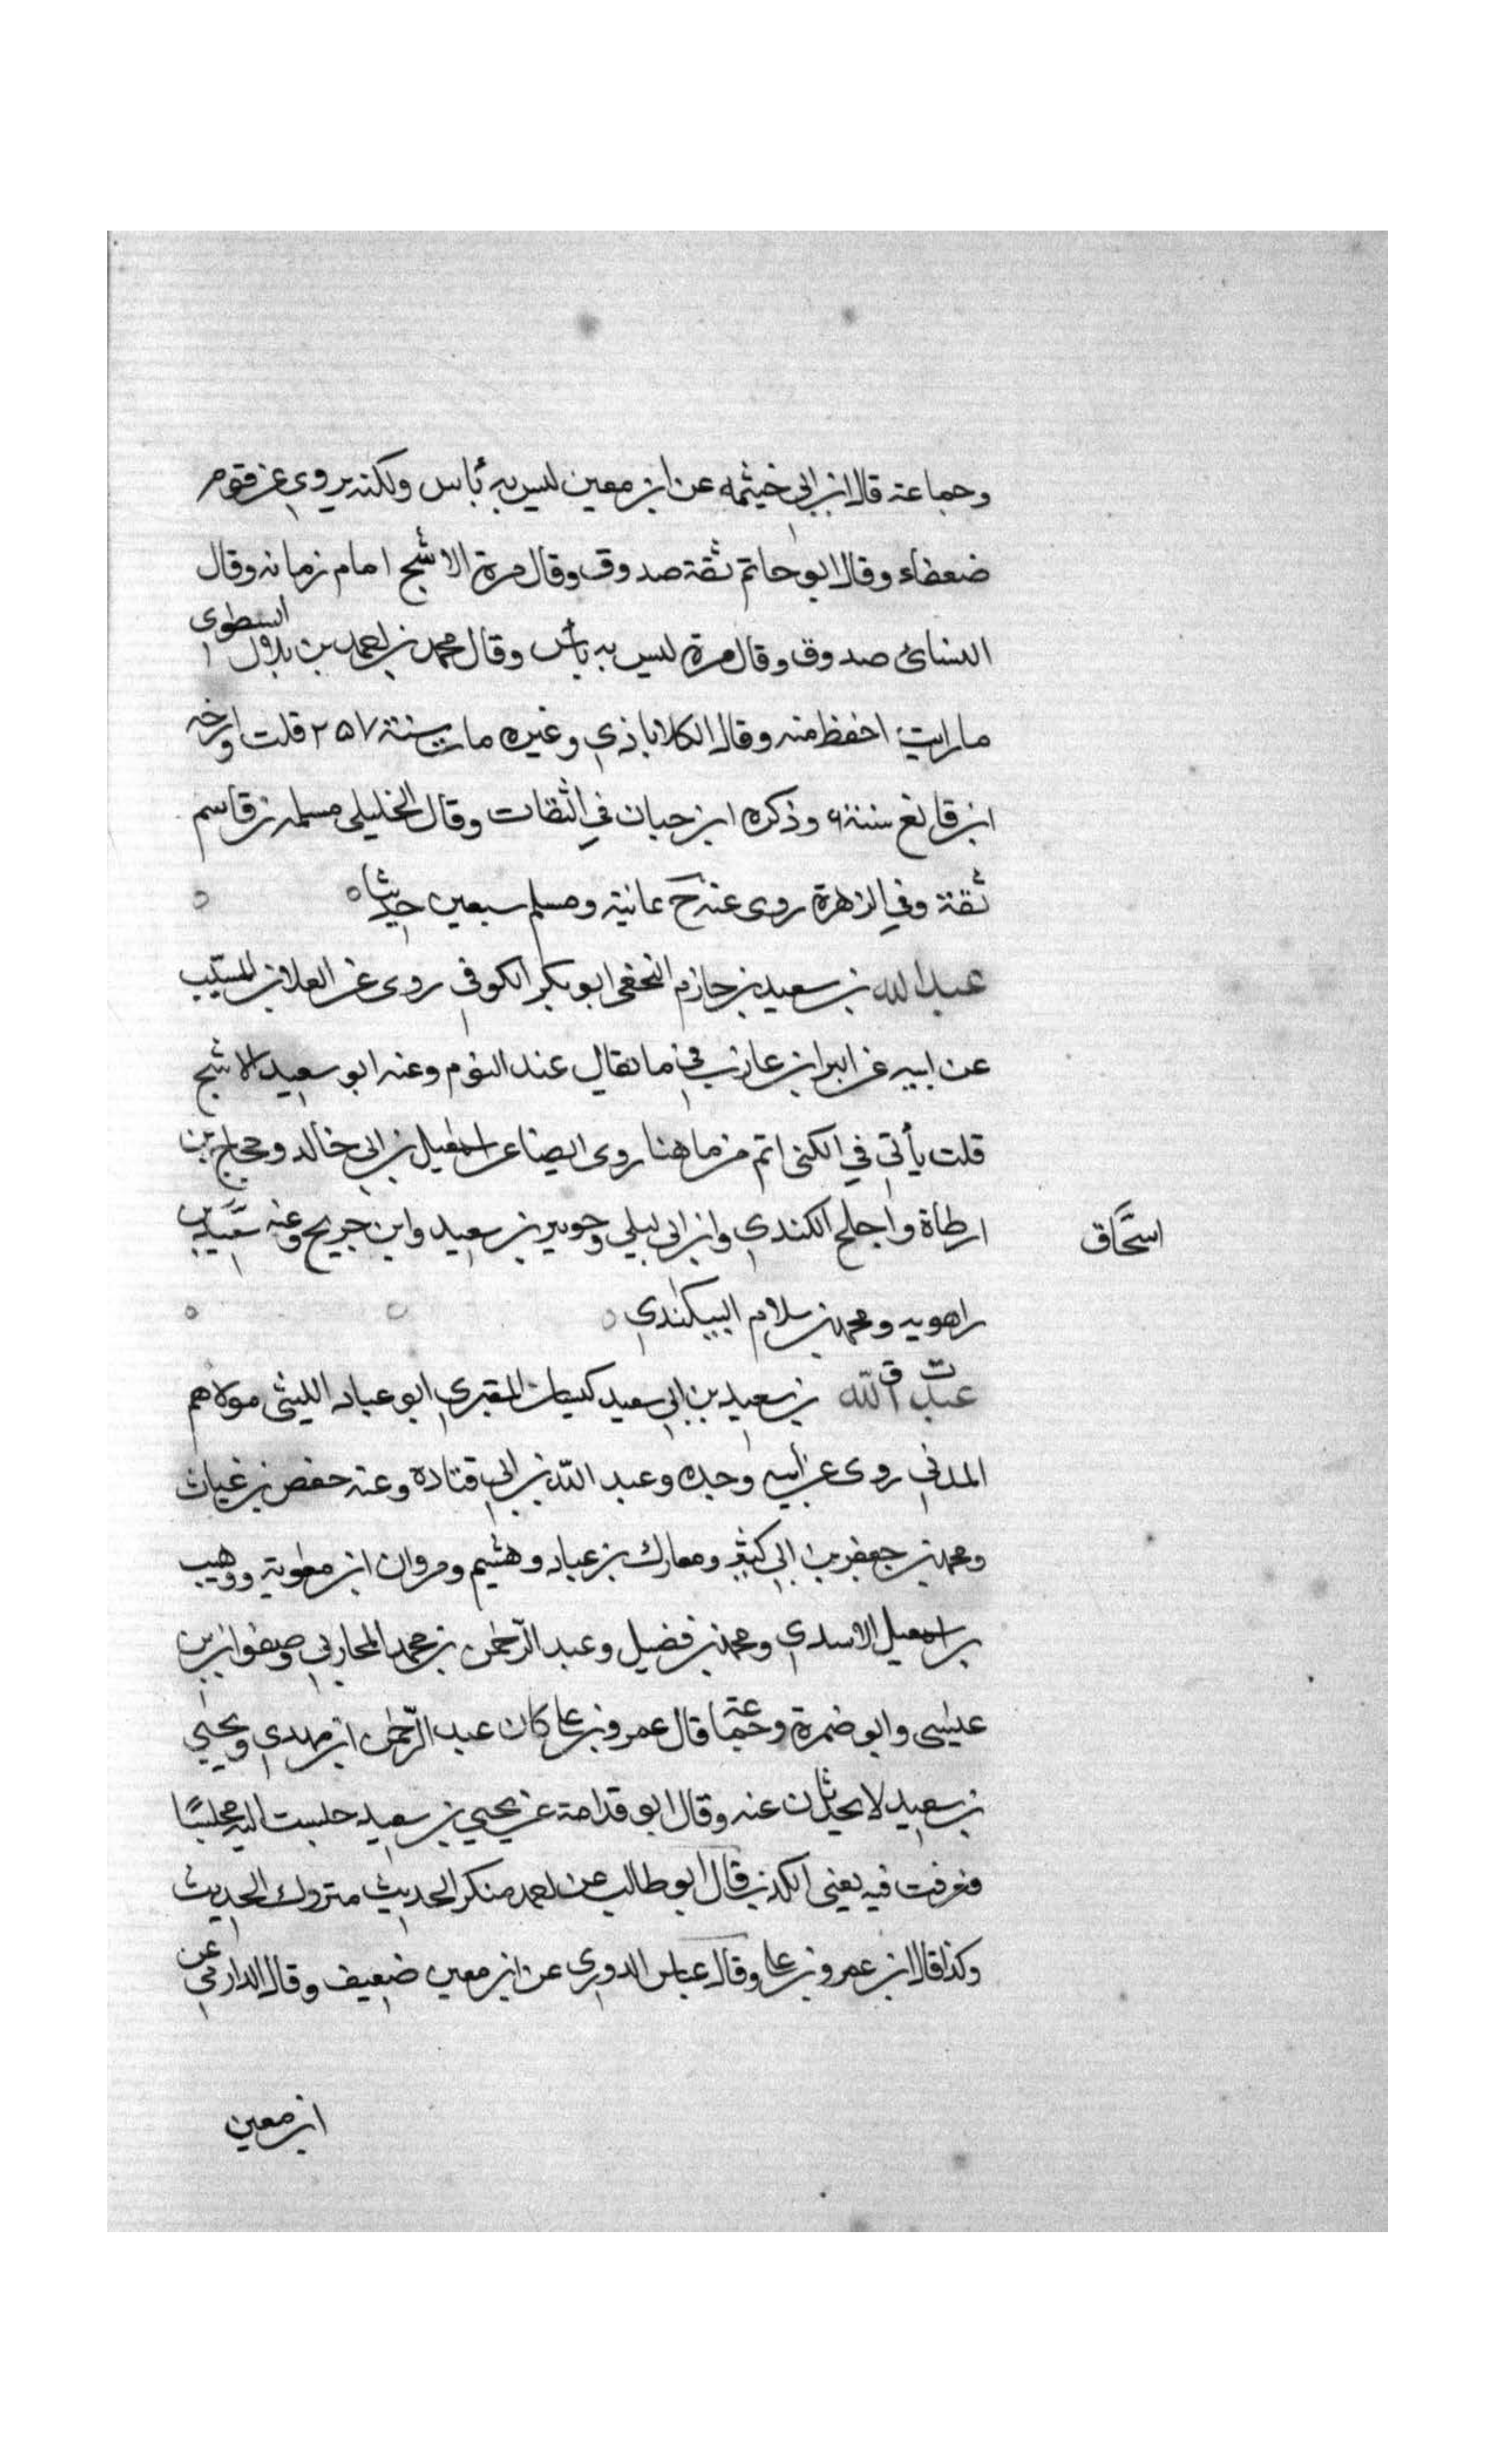 وجماعة قال ابن ابي خيثمه عن ابن معين ليس به بأس ولكنه يروي عن قوم
ضعفاء وقال ابو حاتم ثقة صدوق وقال مرة الاشج امام زمانه وقال
النسائي صدوق وقال مرة ليس به بأس وقال محمد بن احمد بن بلال الشطوى
ما رايت احفظ منه وقال الكلاباذي وغيره مات سنة ٢٥٧ قلت وارخه
ابن قانع سنة ٦ وذكره ابن حبان في الثقات وقال الخليلي مسلمه بن قاسم
ثقة وفي الزهرة روى عنه خ ثمانية ومسلم سبعين حديثا
عبد الله بن سعيد بن حازم النخعي ابو بكر الكوفي روى عن العلا بن المسيب
عن ابيه عن البرا بن عازب في ما يقال عند النوم وعنه ابو سعيد الاشج
قلت يأتي في الكنى اتم من ما هنا روى ايضا عن اسمعيل بن ابي خالد وحجاج بن
ارطاة واجلح الكندي وابن ابي ليلي وجويبر بن سعيد وابن جريج وعنه سعيد بن
اسحاق
راهويه ومحمد بن سلام البيكندي
ت ق
عبد الله بن سعيد بن ابي سعيد كيسان المقبري ابو عباد الليثى مولاهم
المدني روى عن أبيه وجده وعبد الله بن ابي قتادة وعنه حفص بن غياث
ومحمد بن جعفر بن ابي كثير ومعارك بن عباد وهشيم ومروان ابن معوية ووهيب
بن اسمعيل الاسدي ومحمد بن فضيل وعبد الرحمن بن محمد المحاربي وصفوان بن
عيسى وابو ضمرة وجماعة قال عمرو بن على كان عبد الرحمن ابن مهدي ويحيي
بن سعيد لا يحدثان عنه وقال ابو قدامة عن يحيي بن سعيد جلست اليه مجلسًا
فعرفت فيه يعني الكذب قال ابو طالب عن احمد منكر الحديث متروك الحديث
وكذا قال ابن عمرو بن على وقال عباس الدوري عن ابن معين ضعيف وقال الدارمي عن
ابن معين